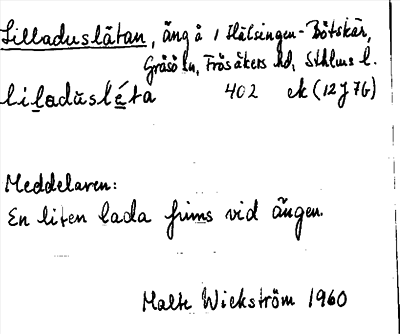 Lilladuslåtan, äng å 1 Hälsingen-Båtskär,
Gräsö sn, Frösåkers hd, Sthlms l.
lilladuslé̱ta 402 ek (12J7G)
Meddelaren:
En liten lada finns vid ängen.
Malte Wickström 1960